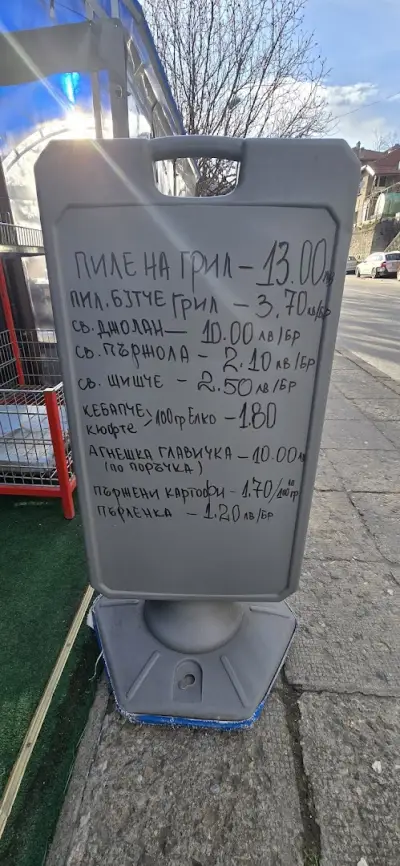 ПИЛЕ НА ГРИЛ – 13.00
ПИЛ. БУТЧЕ ГРИЛ – 3.70 лв/бр
СВ. ДЖОЛАН – 10.00 лв/бр
СВ. ПЪРЖОЛА – 2.10 лв/бр
СВ. ШИШЧЕ – 2.50 лв/бр
КЕБАПЧЕ
КЮФТЕ > 100гр Елко – 1.80
АГНЕШКА ГЛАВИЧКА – 10.00 лв
(ПО ПОРЪЧКА)
ПЪРЖЕНИ КАРТОФИ – 1.70/лв 100 гр
ПЪРЛЕНКА – 1.20 лв/бр